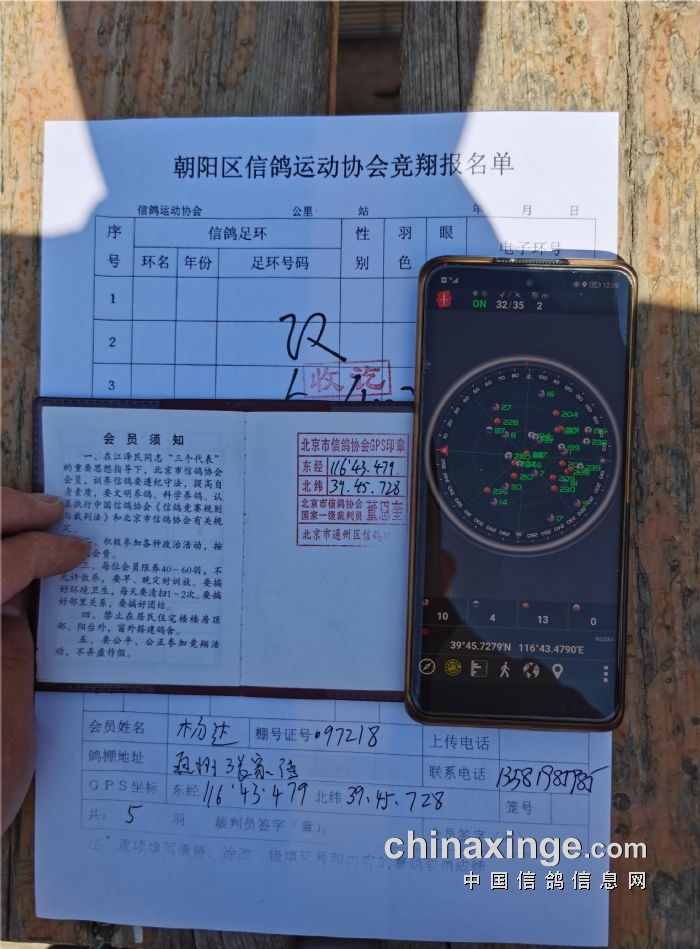 朝阳区信鸽运动协会竞翔报名单
信鸽运动协会 公里 站 年 月 日
序号 信鸽足环 性别 羽色 眼 电子环号
环名 年份 足环号码
1
2 双
3
收讫
会员须知
一、在江泽民同志“三个代表”
的重要思想指导下,北京市信鸽协会
会员,训养信鸽要遵纪守法,提高自
身素质,要文明养鸽、科学养鸽。认
真执行中国信鸽协会《信鸽竞赛规则
与裁判法》和北京市信鸽协会有关规
定。
积极参加各种政治活动,按
会费。
三、每位会员限养40-60羽,不
允许散养,要早、晚定时训放。要搞
好环境卫生,每天要清扫1-2次。要搞
好邻里关系,要搞好团结。
四、禁止在居民住宅楼楼房顶
部、阳台外,窗外搭建鸽舍。
五、要公平、公正参加竞翔活
动,不弄虚作假。
北京市信鸽协会GPS印章
东经 116°43.479
北纬 39.45.728
北京市信鸽协会
国家一级裁判员
北京市通州区信鸽
12:00
ON 32/35 2
16
27
204
228
8
199
239
229
230
30
236
7
14
17
9
10 4 13 0
WGS84
39°45.7279'N 116°43.4790'E
会员姓名 杨达 棚号证号 097218 上传电话
鸽棚地址 联系电话 13581981785
GPS坐标 东经 116°43.479 北纬 39.45.728 笼号
共: 5 羽 裁判员签字(章): 会员签字
chinaxinge.com
中国信鸽信息网